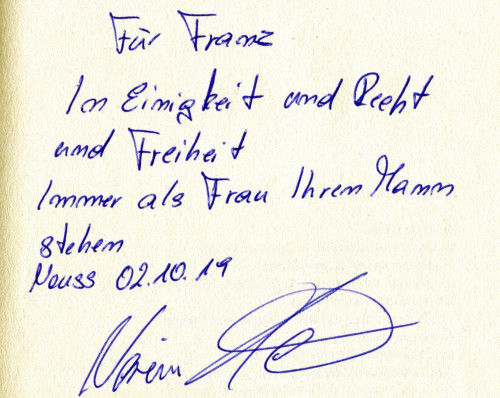 Für Franz
In Einigkeit und Recht
und Freiheit
Immer als Frau Ihren Mann
stehen
Neuss 02.10.19